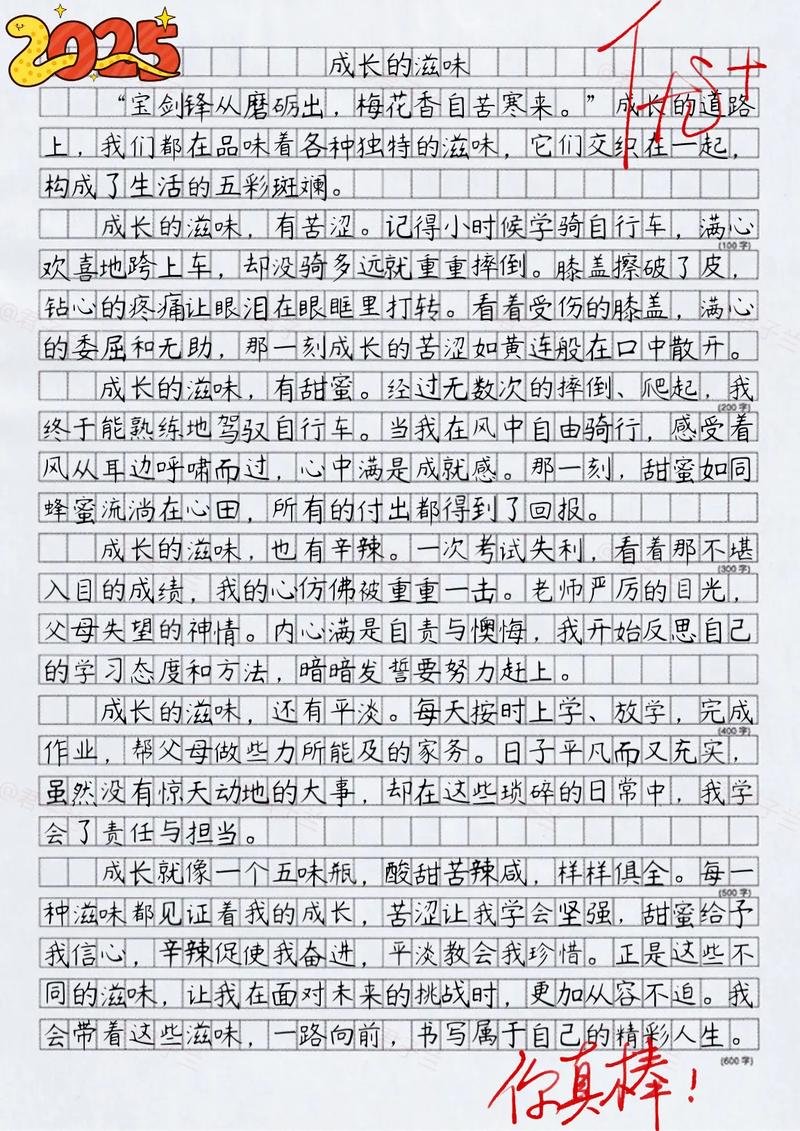 2025
成长的滋味
优+
“宝剑锋从磨砺出，梅花香自苦寒来。”成长的道路
上，我们都在品味着各种独特的滋味，它们交织在一起，
构成了生活的五彩斑斓。
成长的滋味，有苦涩。记得小时候学骑自行车，满心
(100字)
欢喜地跨上车，却没骑多远就重重摔倒。膝盖擦破了皮，
钻心的疼痛让眼泪在眼眶里打转。看着受伤的膝盖，满心
的委屈和无助，那一刻成长的苦涩如黄连般在口中散开。
成长的滋味，有甜蜜。经过无数次的摔倒、爬起，我
(200字)
终于能熟练地驾驭自行车。当我在风中自由骑行，感受着
风从耳边呼啸而过，心中满是成就感。那一刻，甜蜜如同
蜂蜜流淌在心田，所有的付出都得到了回报。
成长的滋味，也有辛辣。一次考试失利，看着那不堪
(300字)
入目的成绩，我的心仿佛被重重一击。老师严厉的目光，
父母失望的神情。内心满是自责与懊悔，我开始反思自己
的学习态度和方法，暗暗发誓要努力赶上。
成长的滋味，还有平淡。每天按时上学、放学，完成
(400字)
作业，帮父母做些力所能及的家务。日子平凡而又充实，
虽然没有惊天动地的大事，却在这些琐碎的日常中，我学
会了责任与担当。
成长就像一个五味瓶，酸甜苦辣咸，样样俱全。每一
(500字)
种滋味都见证着我的成长，苦涩让我学会坚强，甜蜜给予
我信心，辛辣促使我奋进，平淡教会我珍惜。正是这些不
同的滋味，让我在面对未来的挑战时，更加从容不迫。我
会带着这些滋味，一路向前，书写属于自己的精彩人生。
(600字)
你真棒！